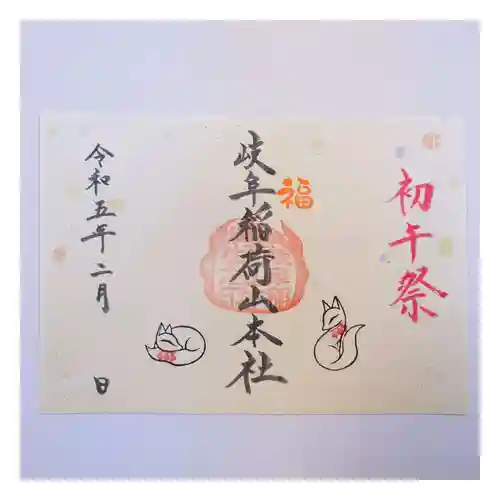 初午祭
福
岐阜稲荷山本社
令和五年二月　日